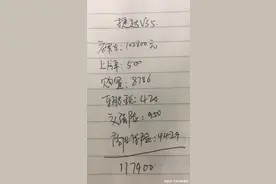 捷达VS5
裸车:102800元
上牌:500
购置:8786
车船税:420
交强险:950
商业保险:4429
117900